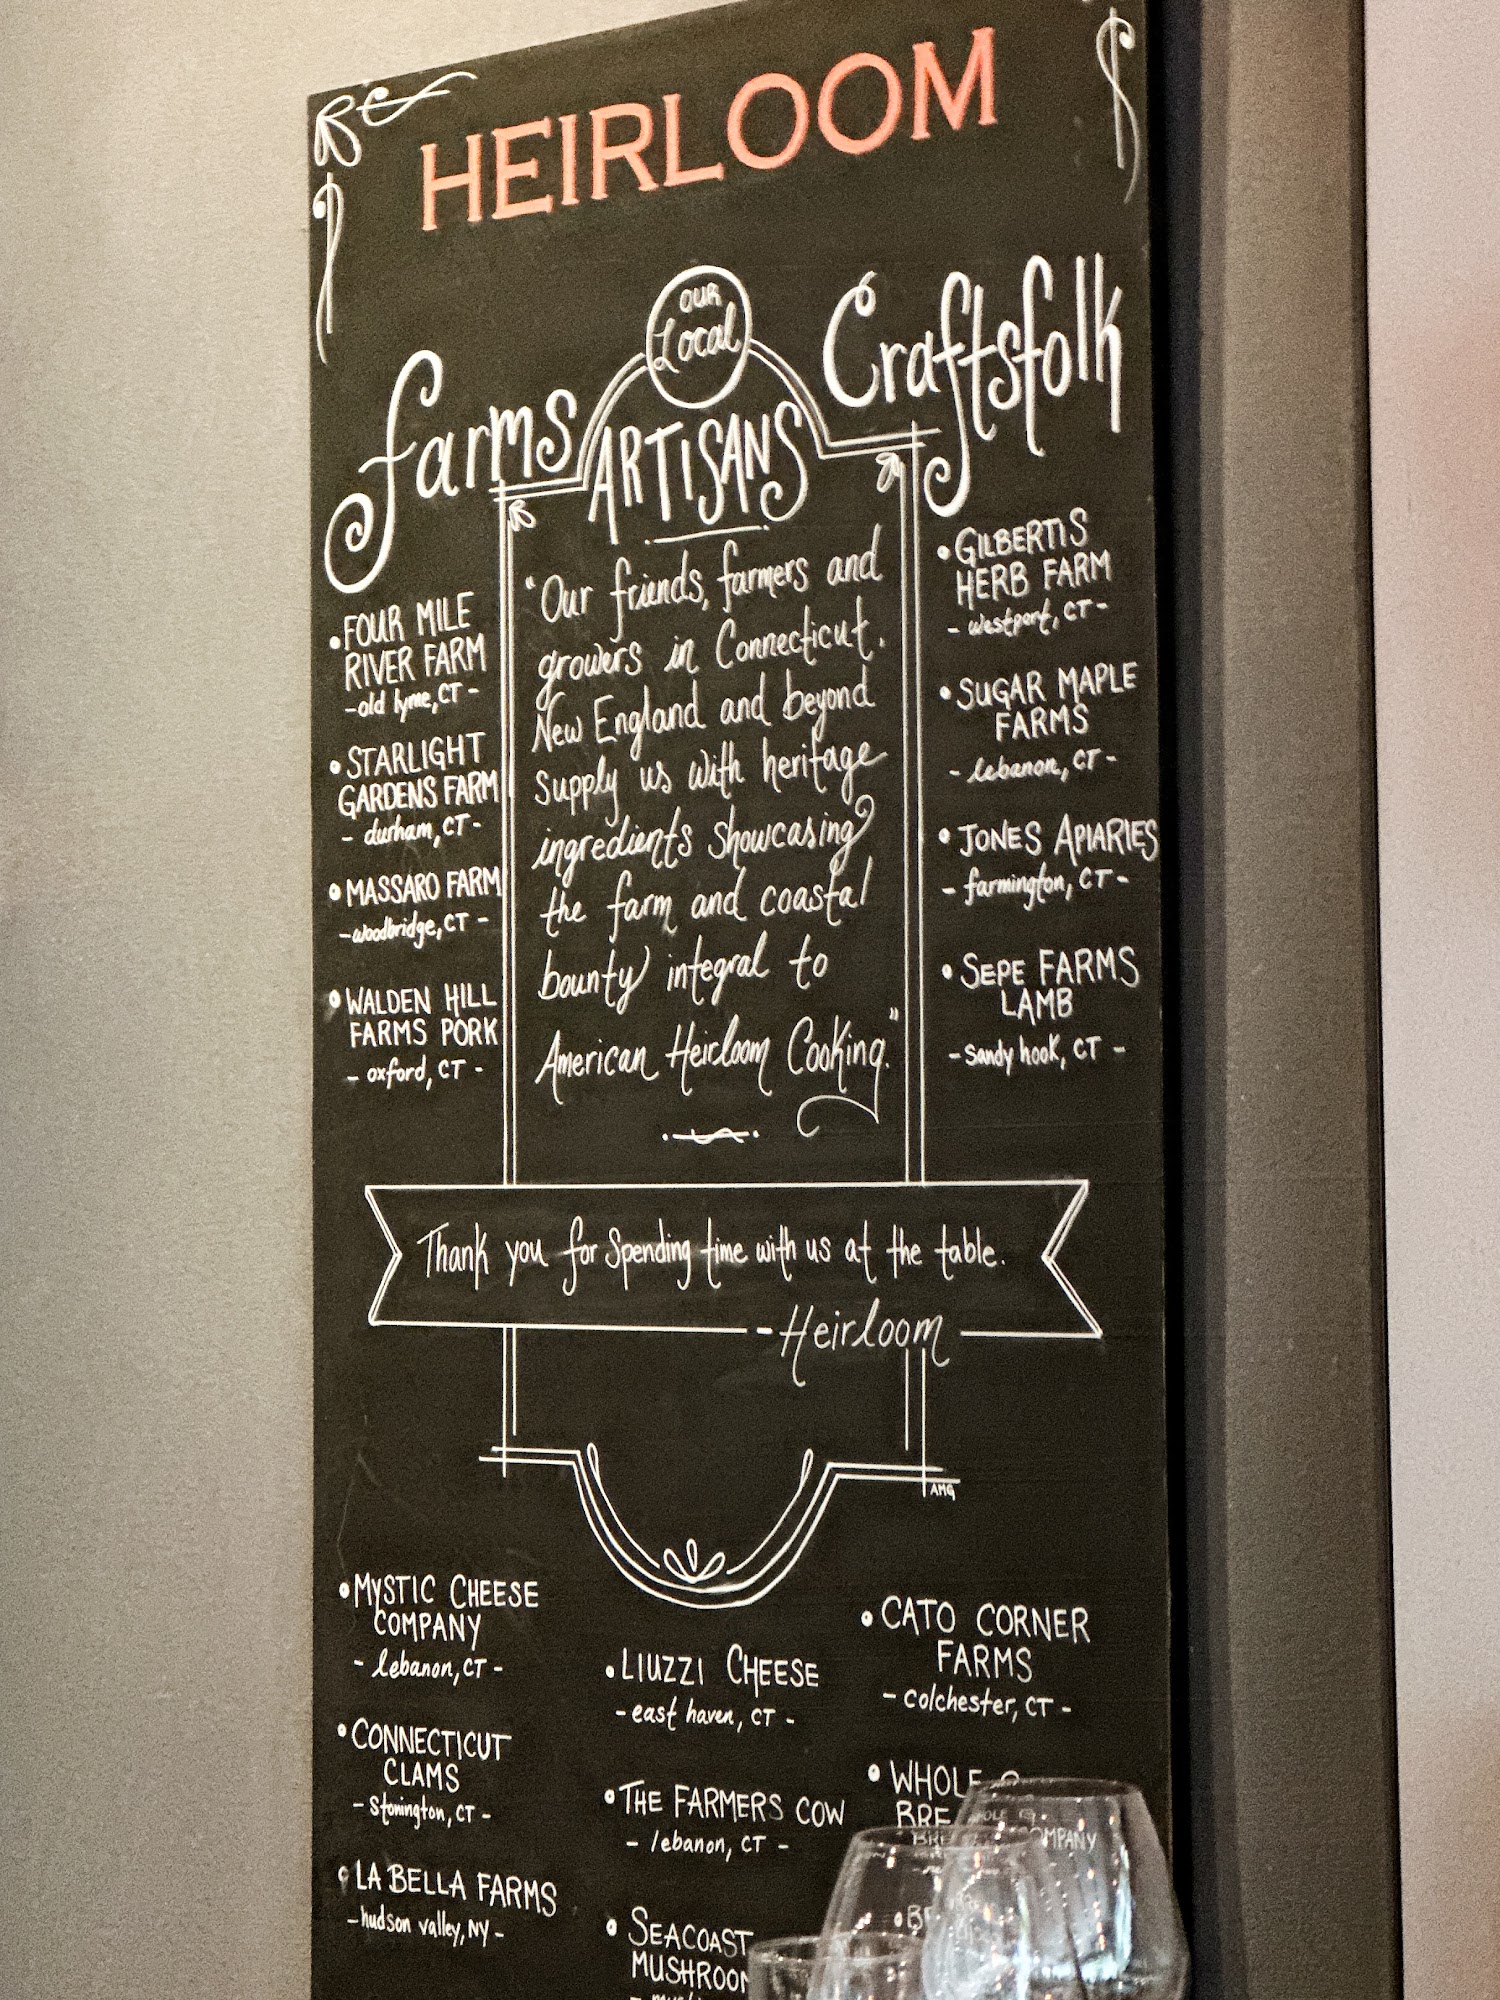 HEIRLOOM
OUR
Local
farms
ARTISANS
Craftsfolk
• FOUR MILE
RIVER FARM
- old lyme, CT -
• STARLIGHT
GARDENS FARM
- durham, CT -
• MASSARO FARM
- woodbridge, CT -
• WALDEN HILL
FARMS PORK
- oxford, CT -
"Our friends, farmers and
growers in Connecticut.
New England and beyond
supply us with heritage
ingredients showcasing
the farm and coastal
bounty integral to
American Heirloom Cooking."
• GILBERTIS
HERB FARM
- westport, CT -
• SUGAR MAPLE
FARMS
- lebanon, CT -
• JONES APIARIES
- farmington, CT -
• SEPE FARMS
LAMB
- sandy hook, CT -
Thank you for spending time with us at the table.
- Heirloom
AMG
• MYSTIC CHEESE
COMPANY
- lebanon, CT -
• CONNECTICUT
CLAMS
- Stonington, CT -
• LA BELLA FARMS
- hudson valley, NY -
• LIUZZI CHEESE
- east haven, CT -
• THE FARMERS COW
- lebanon, CT -
• SEACOAST
• CATO CORNER
FARMS
- colchester, CT -
• WHOLE